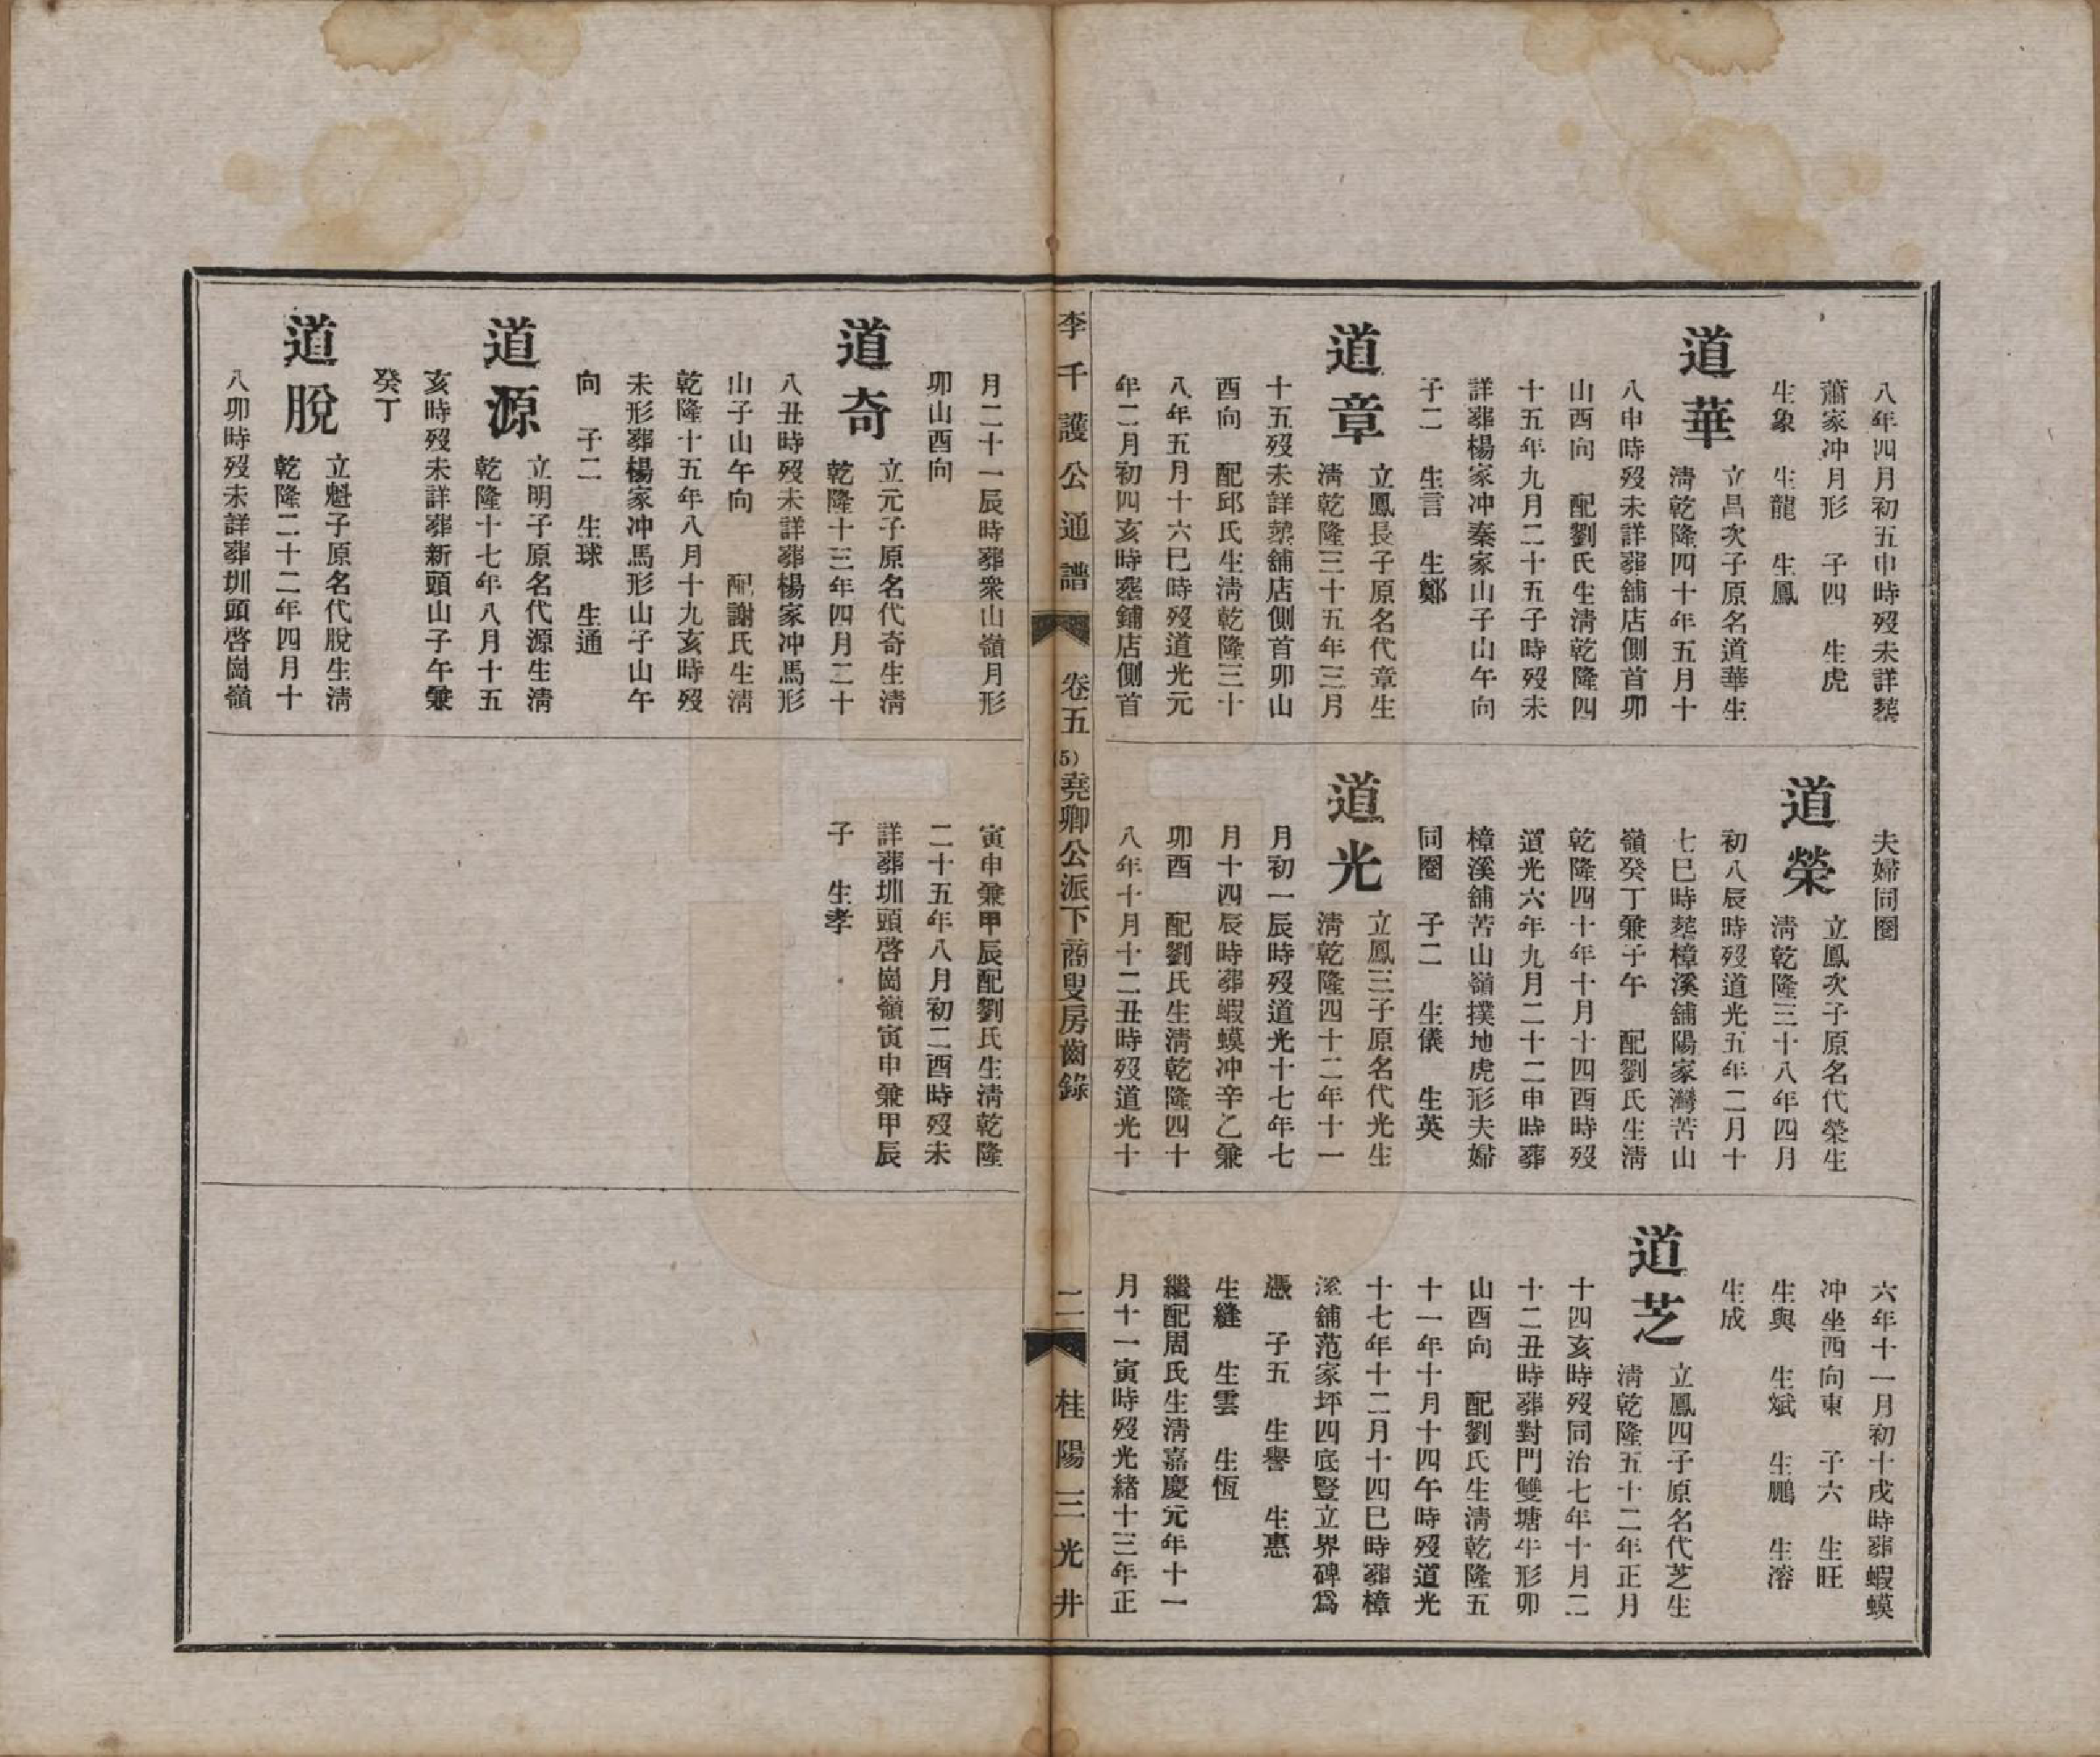 八年四月初五申時歿未詳塟
蕭家冲月形　子四　生虎
生象　生龍　生鳳
道華
立昌次子原名道華生
清乾隆四十年五月十
八申時歿未詳葬舖店側首卯
山酉向　配劉氏生清乾隆四
十五年九月二十五子時歿未
詳葬楊家冲秦家山子山午向
子二　生言　生鄭
道章
立鳳長子原名代章生
清乾隆三十五年三月
十五歿未詳塟舖店側首卯山
酉向　配邱氏生清乾隆三十
八年五月十六巳時歿道光元
年二月初四亥時塟鋪店側首
夫婦同圈
道榮
立鳳次子原名代榮生
清乾隆三十八年四月
初八辰時歿道光五年二月十
七巳時塟樟溪舖陽家灣苦山
嶺癸丁兼子午　配劉氏生清
乾隆四十年十月十四酉時歿
道光六年九月二十二申時葬
樟溪舖苦山嶺撲地虎形夫婦
同圈　子二　生儀　生英
道光
立鳳三子原名代光生
清乾隆四十二年十一
月初一辰時歿道光十七年七
月十四辰時葬蝦蟆冲辛乙兼
卯酉　配劉氏生清乾隆四十
八年十月十二丑時歿道光十
六年十一月初十戌時葬蝦蟆
冲坐西向東　子六　生旺
生與　生斌　生鵬　生溶
生成
道芝
立鳳四子原名代芝生
清乾隆五十二年正月
十四亥時歿同治七年十月二
十二丑時葬對門雙塘牛形卯
山酉向　配劉氏生清乾隆五
十一年十月十四午時歿道光
十七年十二月十四巳時葬樟
溪舖范家坪四底豎立界碑爲
憑　子五　生譽　生惠
生縫　生雲　生恆
繼配周氏生清嘉慶元年十一
月十一寅時歿光緒十三年正
李千護公通譜　卷五　(5)　堯卿公派下商叟房齒錄　二　桂陽三光井
月二十一辰時葬衆山嶺月形
卯山酉向
道奇
立元子原名代奇生清
乾隆十三年四月二十
八丑時歿未詳葬楊家冲馬形
山子山午向　配謝氏生清
乾隆十五年八月十九亥時歿
未形葬楊家冲馬形山子山午
向　子二　生球　生通
道源
立明子原名代源生清
乾隆十七年八月十五
亥時歿未詳葬新頭山子午兼
癸丁
道脫
立魁子原名代脫生清
乾隆二十二年四月十
八卯時歿未詳葬圳頭啓崗嶺
寅申兼甲辰配劉氏生清乾隆
二十五年八月初二酉時歿未
詳葬圳頭啓崗嶺寅申兼甲辰
子　生孝